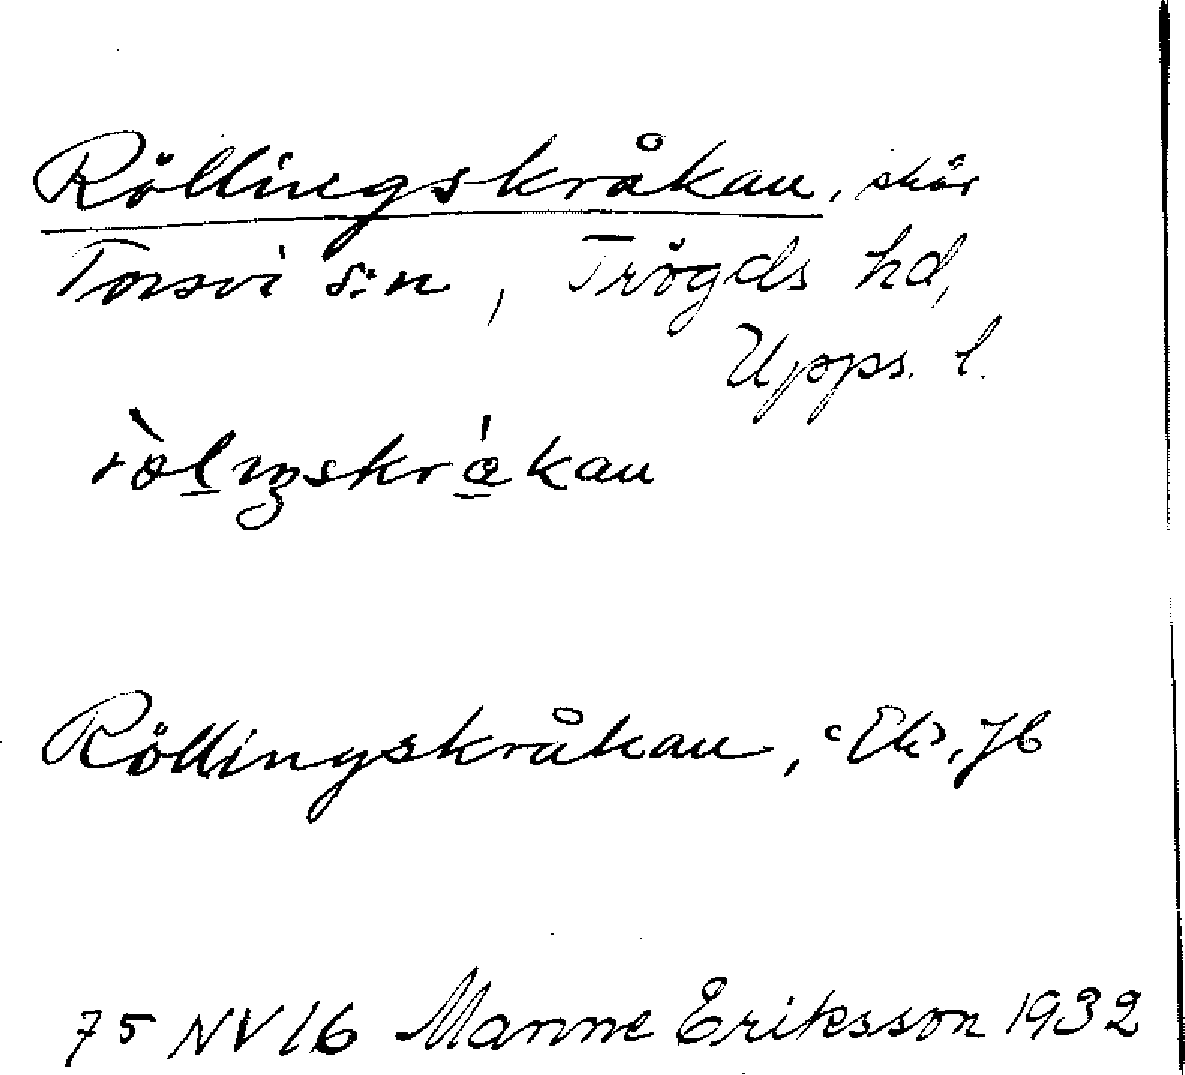 Röllingskråkan, skär
Torsvi s:n, Trögds hd,
Upps. l.
Röllingskråkan,
75 NV 16 Manne Eriksson 1932